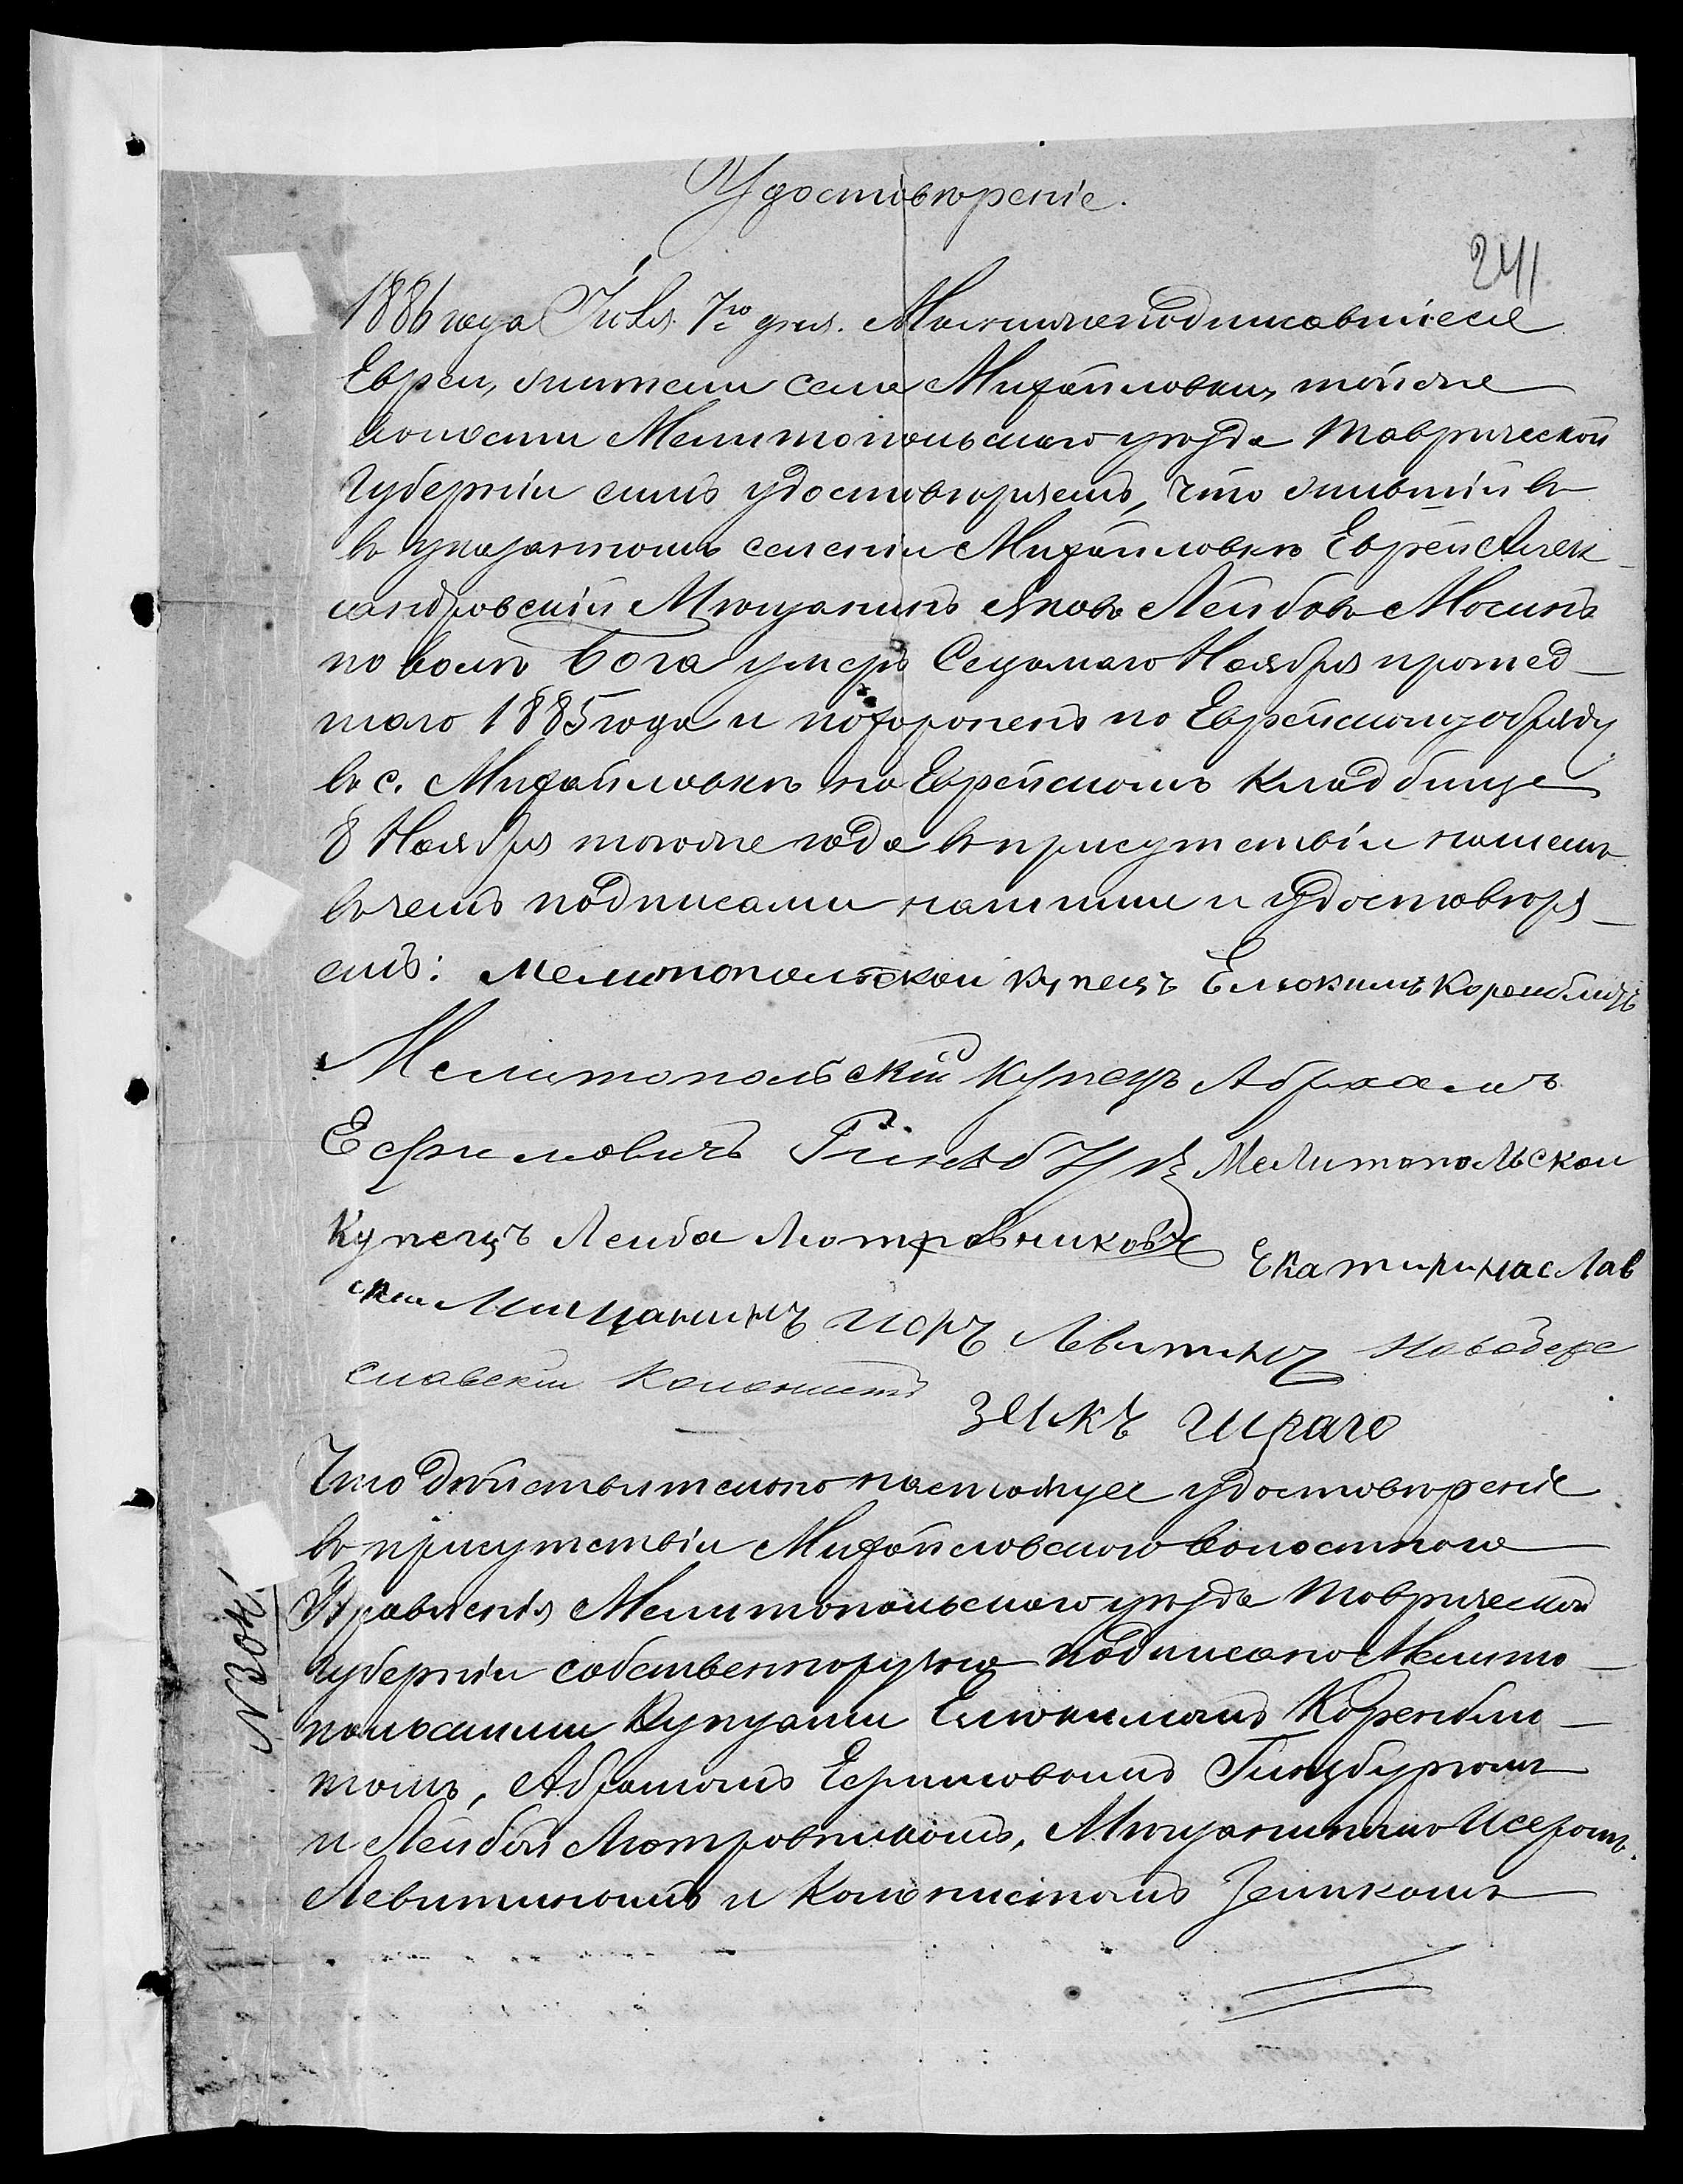 Удостовѣреніе.
241
1886 года Іюля 7го дня. Мы нижеподписавшіеся
Евреи, жители села Михайловки, тойже
волости Мелитопольскаго уѣзда Таврической
Губерніи симъ удостовѣряемъ, что жившій въ
въ указанномъ селеніи Михайловкѣ Еврей Алек-
сандровскій Мѣщанинъ Яковъ Лейбовъ Мосинъ
по волѣ Бога умеръ Седьмаго Ноября прошед-
шаго 1885 года и похороненъ по Еврейскому обряду
въ с. Михайловкѣ на Еврейскомъ кладбище
8 Ноября тогоже года въ присутствіи нашемъ
въ чемъ подписами нашими и удостовѣря-
емъ: Мелитопольской купецъ Елюкимъ Коренблитъ
Мелитопольскій купецъ Абрхамъ
Ефимовичъ Гинзбургъ Мелитопольской
Купецъ Леиба Лютровниковъ Екатиринаслав
скии Мищанинъ исръ Левитинъ Новобере
славскіи колонистъ
зелкъ
Что дѣйствительно настоящее удостовѣреніе
въ присутствіи Михайловскаго Волостнаго
Правленія Мелитопольскаго уѣзда Таврической
губерніи собственноручно подписано Мелито-
польскими Купцами Елюкимомъ Коренбли-
томъ, Абрамомъ Ефимовымъ Гинзбургомъ
и Лейбой Лютровникомъ, Мѣщаниномъ Исеромъ
Левитинымъ и Колонистомъ Зеликомъ